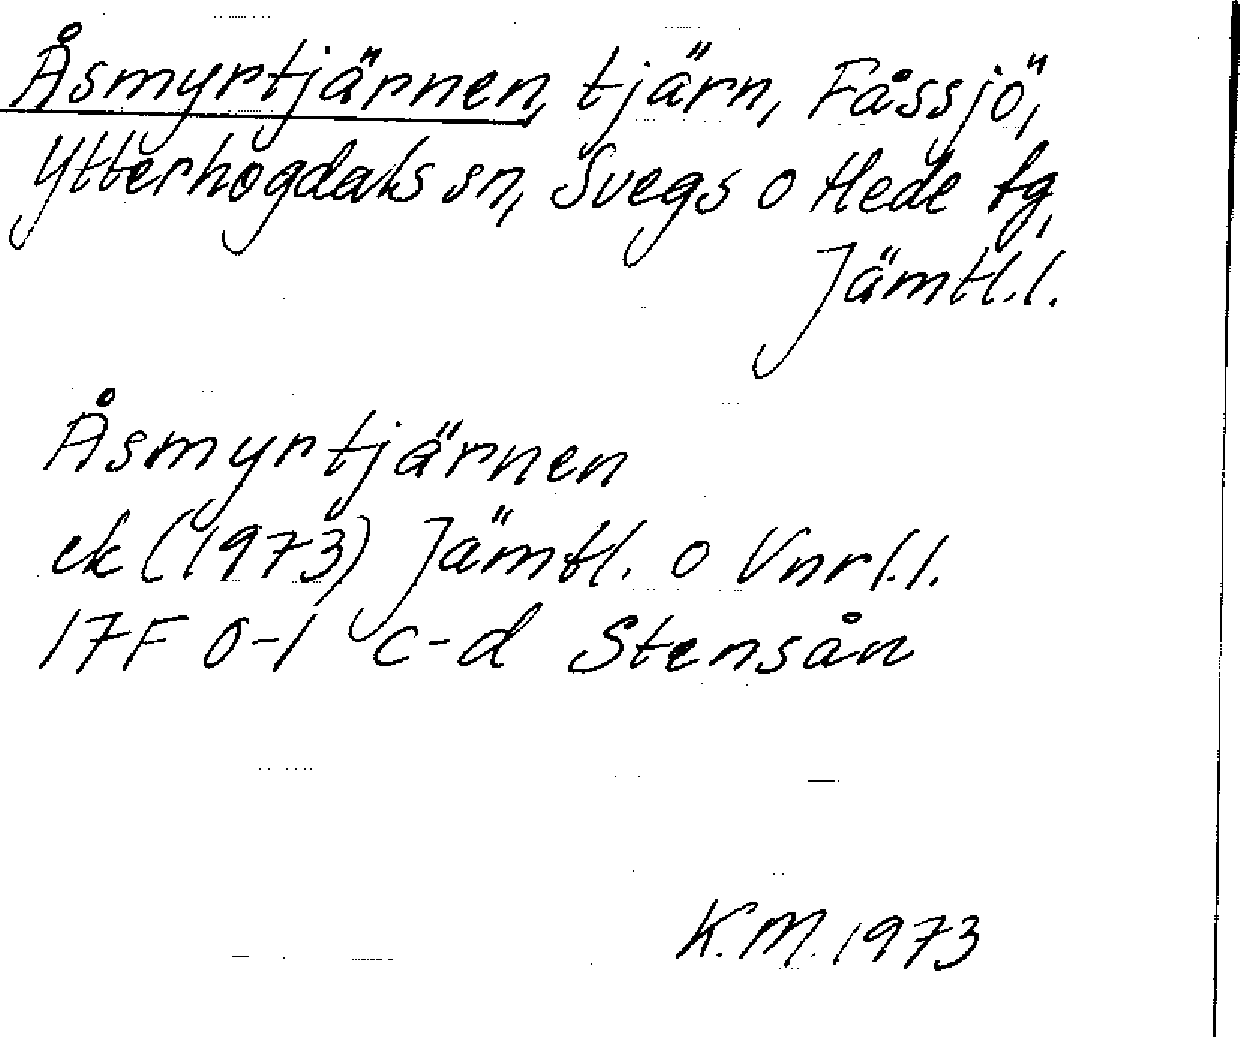 Åsmyrtjärnen, tjärn, Fåssjö,
Ytterhogdals sn, Svegs o Hede tg,
Jämtl.l.
Åsmyrtjärnen
ek (1973) Jämtl. o Vnrl.l.
17F 0-1 c-d Stensån
K.M. 1973